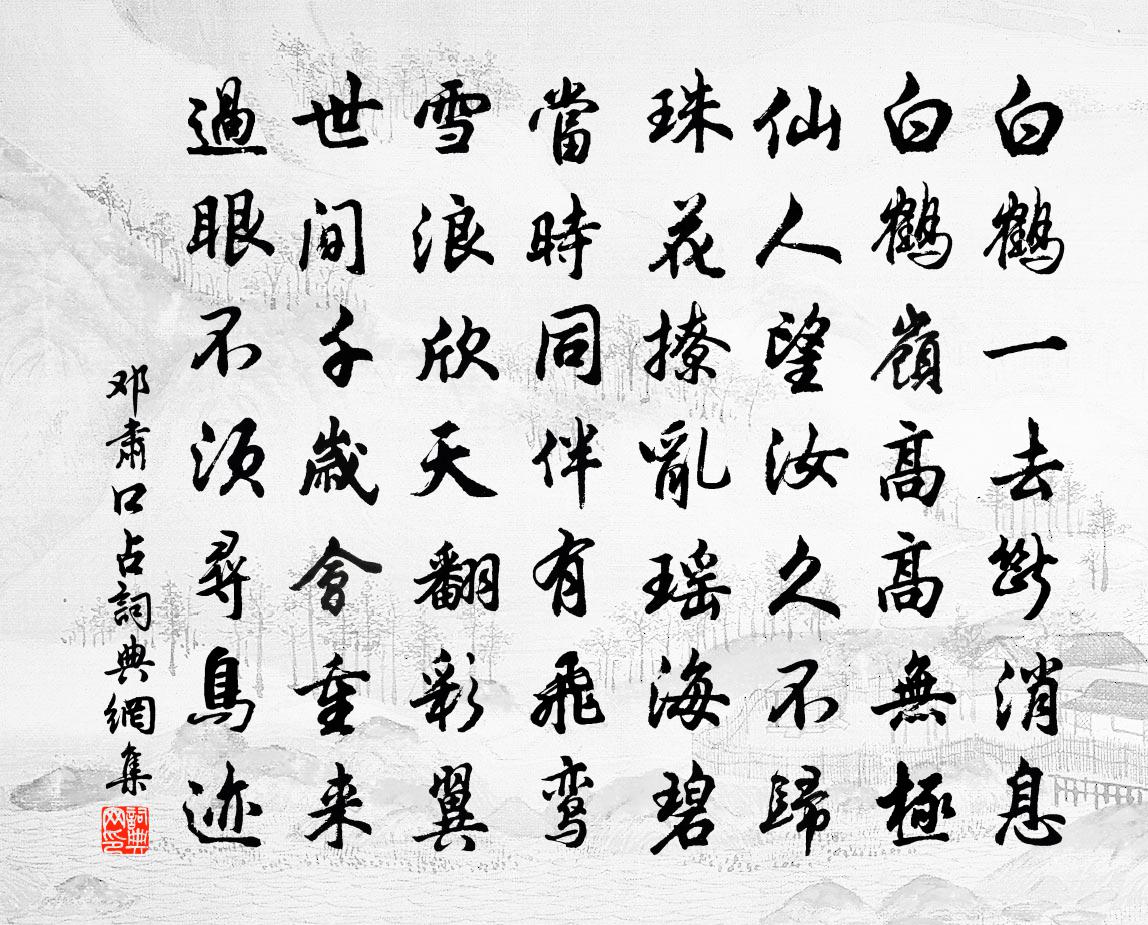 白鶴一去断消息
白鶴嶺高高無極
仙人望汝久不歸
珠花撩亂瑶海碧
當時同伴有飛鸾
雪浪欣天翻彩翼
世間千歲會重来
過眼不須尋鳥迹
邓肅口占詞典網集
詞典網印